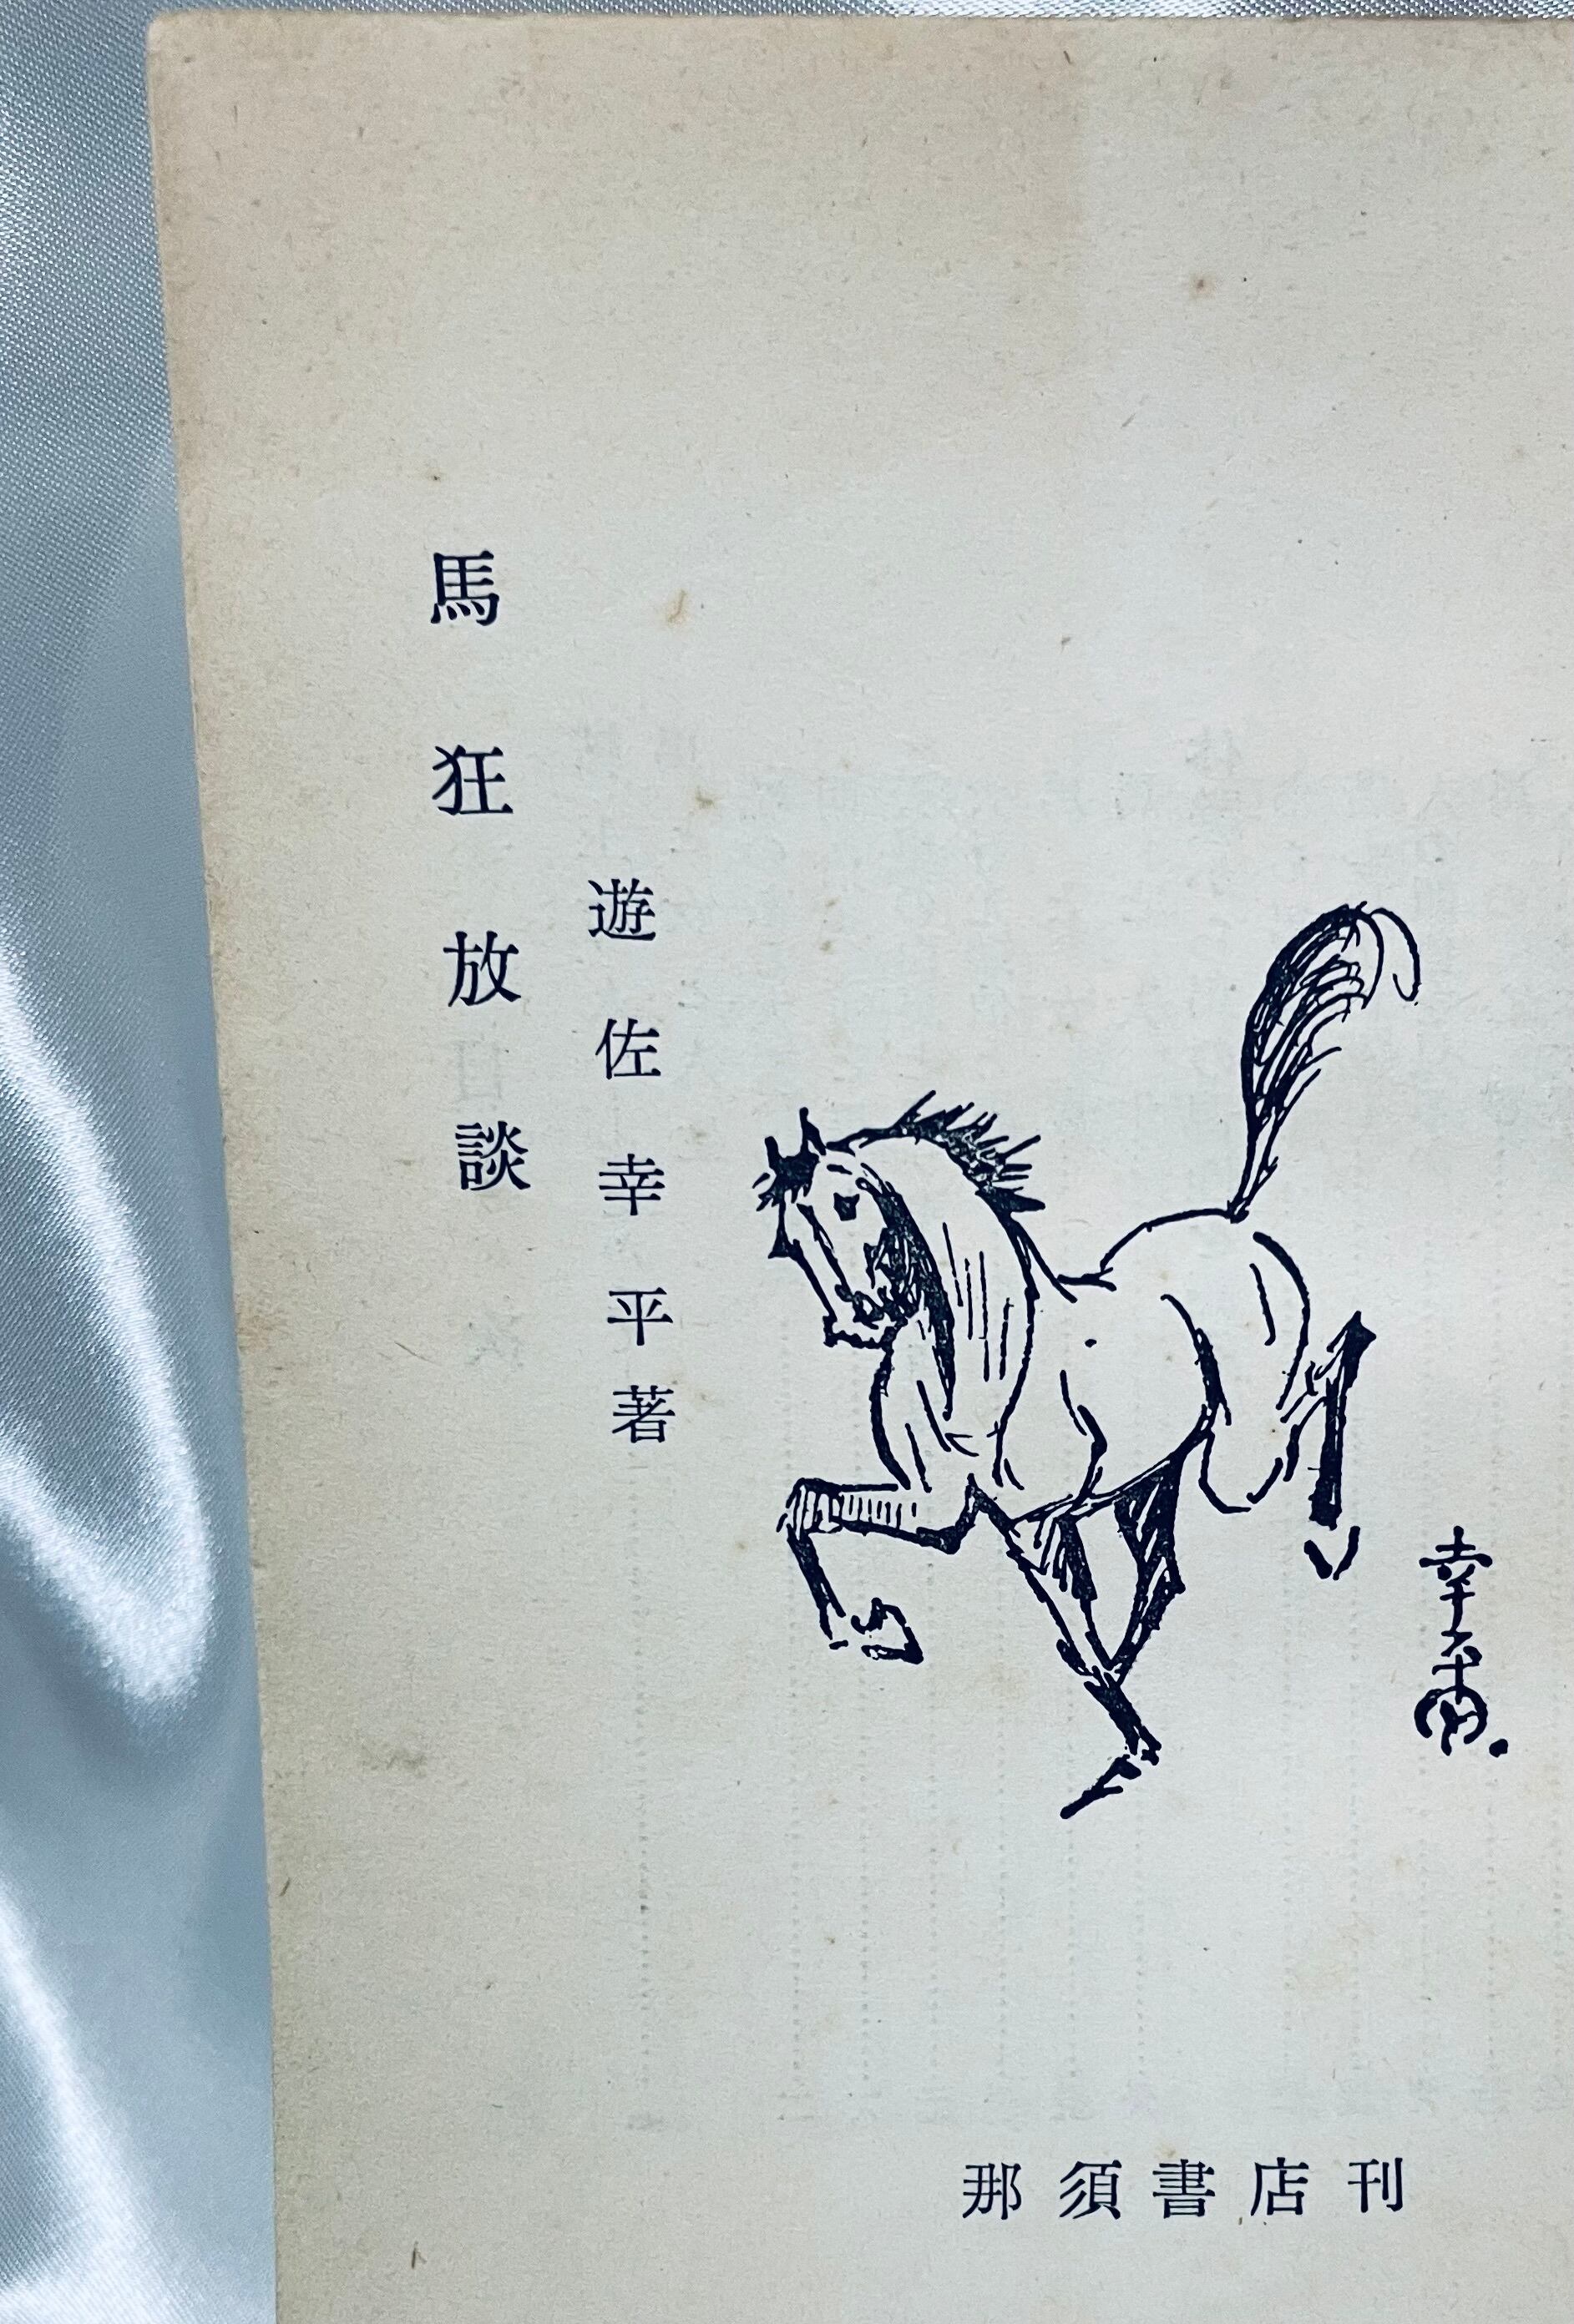 馬狂放談
遊佐幸平著
那須書店刊